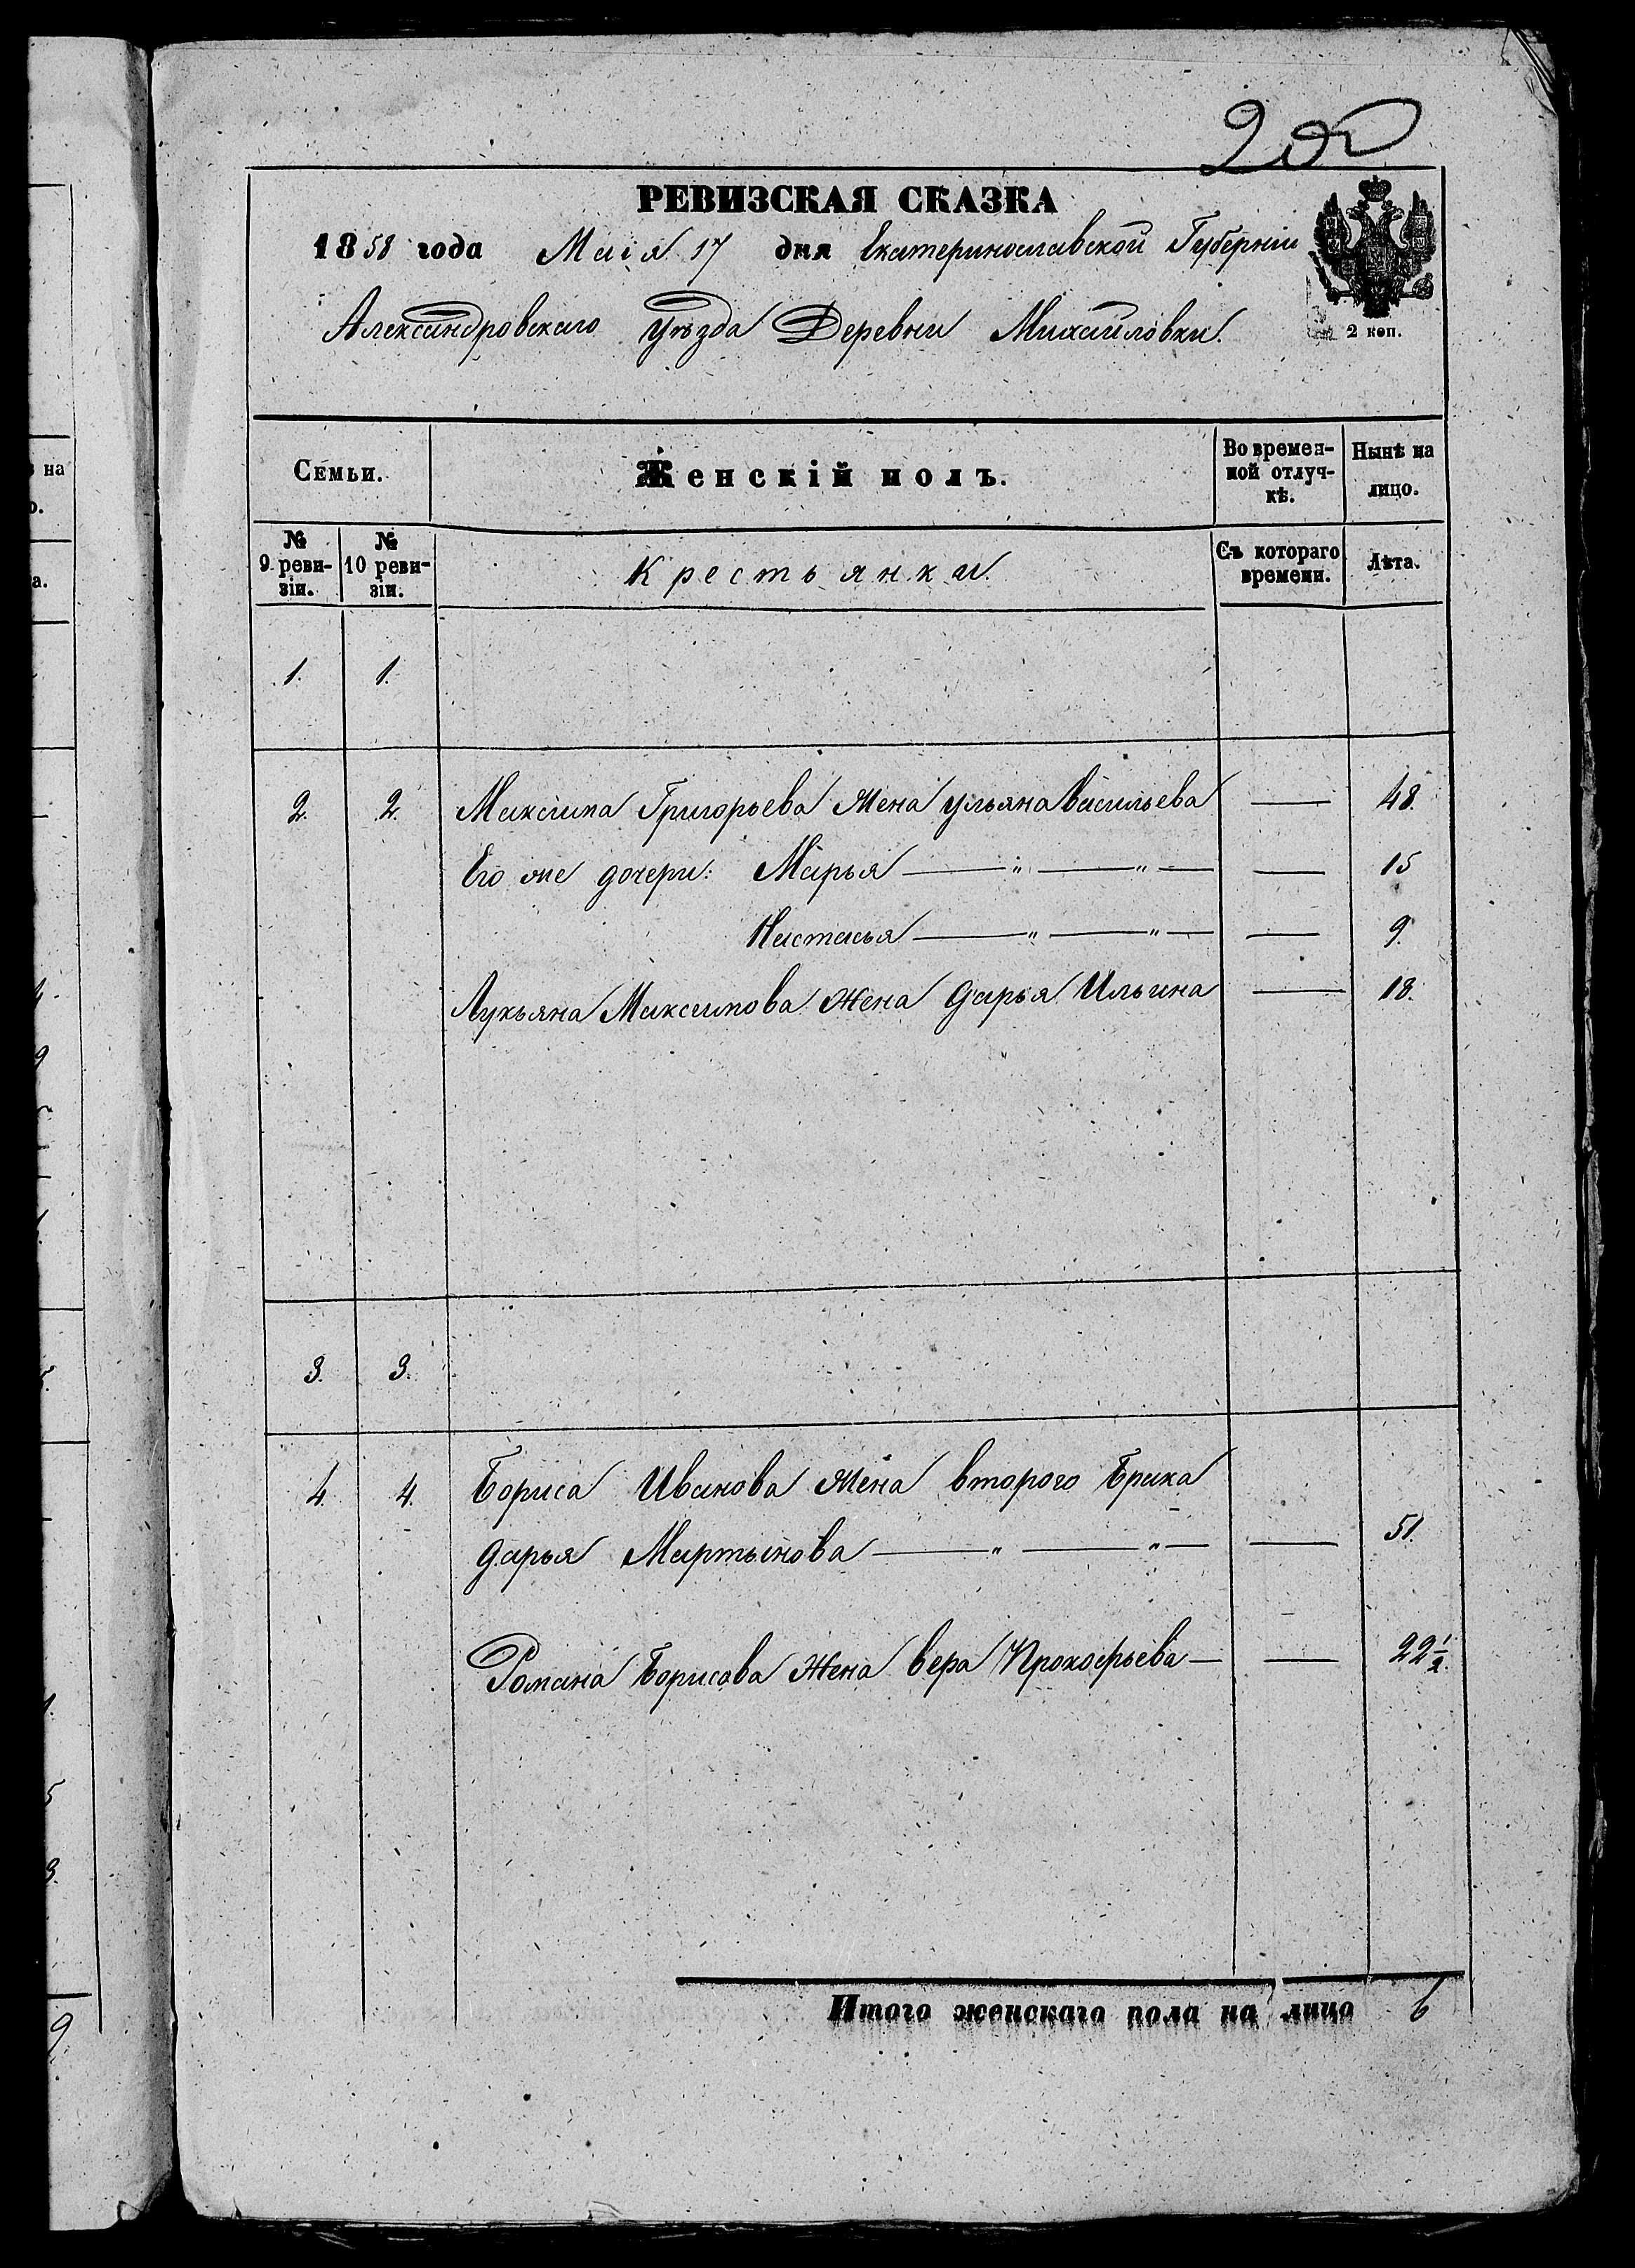 РЕВИЗСКАЯ СКАЗКА
1858 года Маія 17 дня Екатеринославской Губерніи
Александровскаго Уѣзда Деревни Михайловки.
2 коп.
Семьи. Женскій полъ. Во времен- Нынѣ на
ной отлуч- лицо.
кѣ.
№ 9 реви- зіи. № 10 реви- зіи. Крестьянки. Съ котораго времени. Лѣта.
1. 1.
2. 2. Максима Григорьева Жена Ульяна Васильева — 48.
Его же дочери: Марья — " — " — — 15
Настасья — " — " — — 9.
Лукьяна Максимова Жена Дарья Ильина — 18.
3. 3.
4. 4. Бориса Иванова Жена второго Брака
Дарья Мартынова — " — " — — 51.
Романа Борисова Жена Вера Прокофьева — — 22 1/2.
Итого женскаго пола на лицо 6
на
о.
а.
9